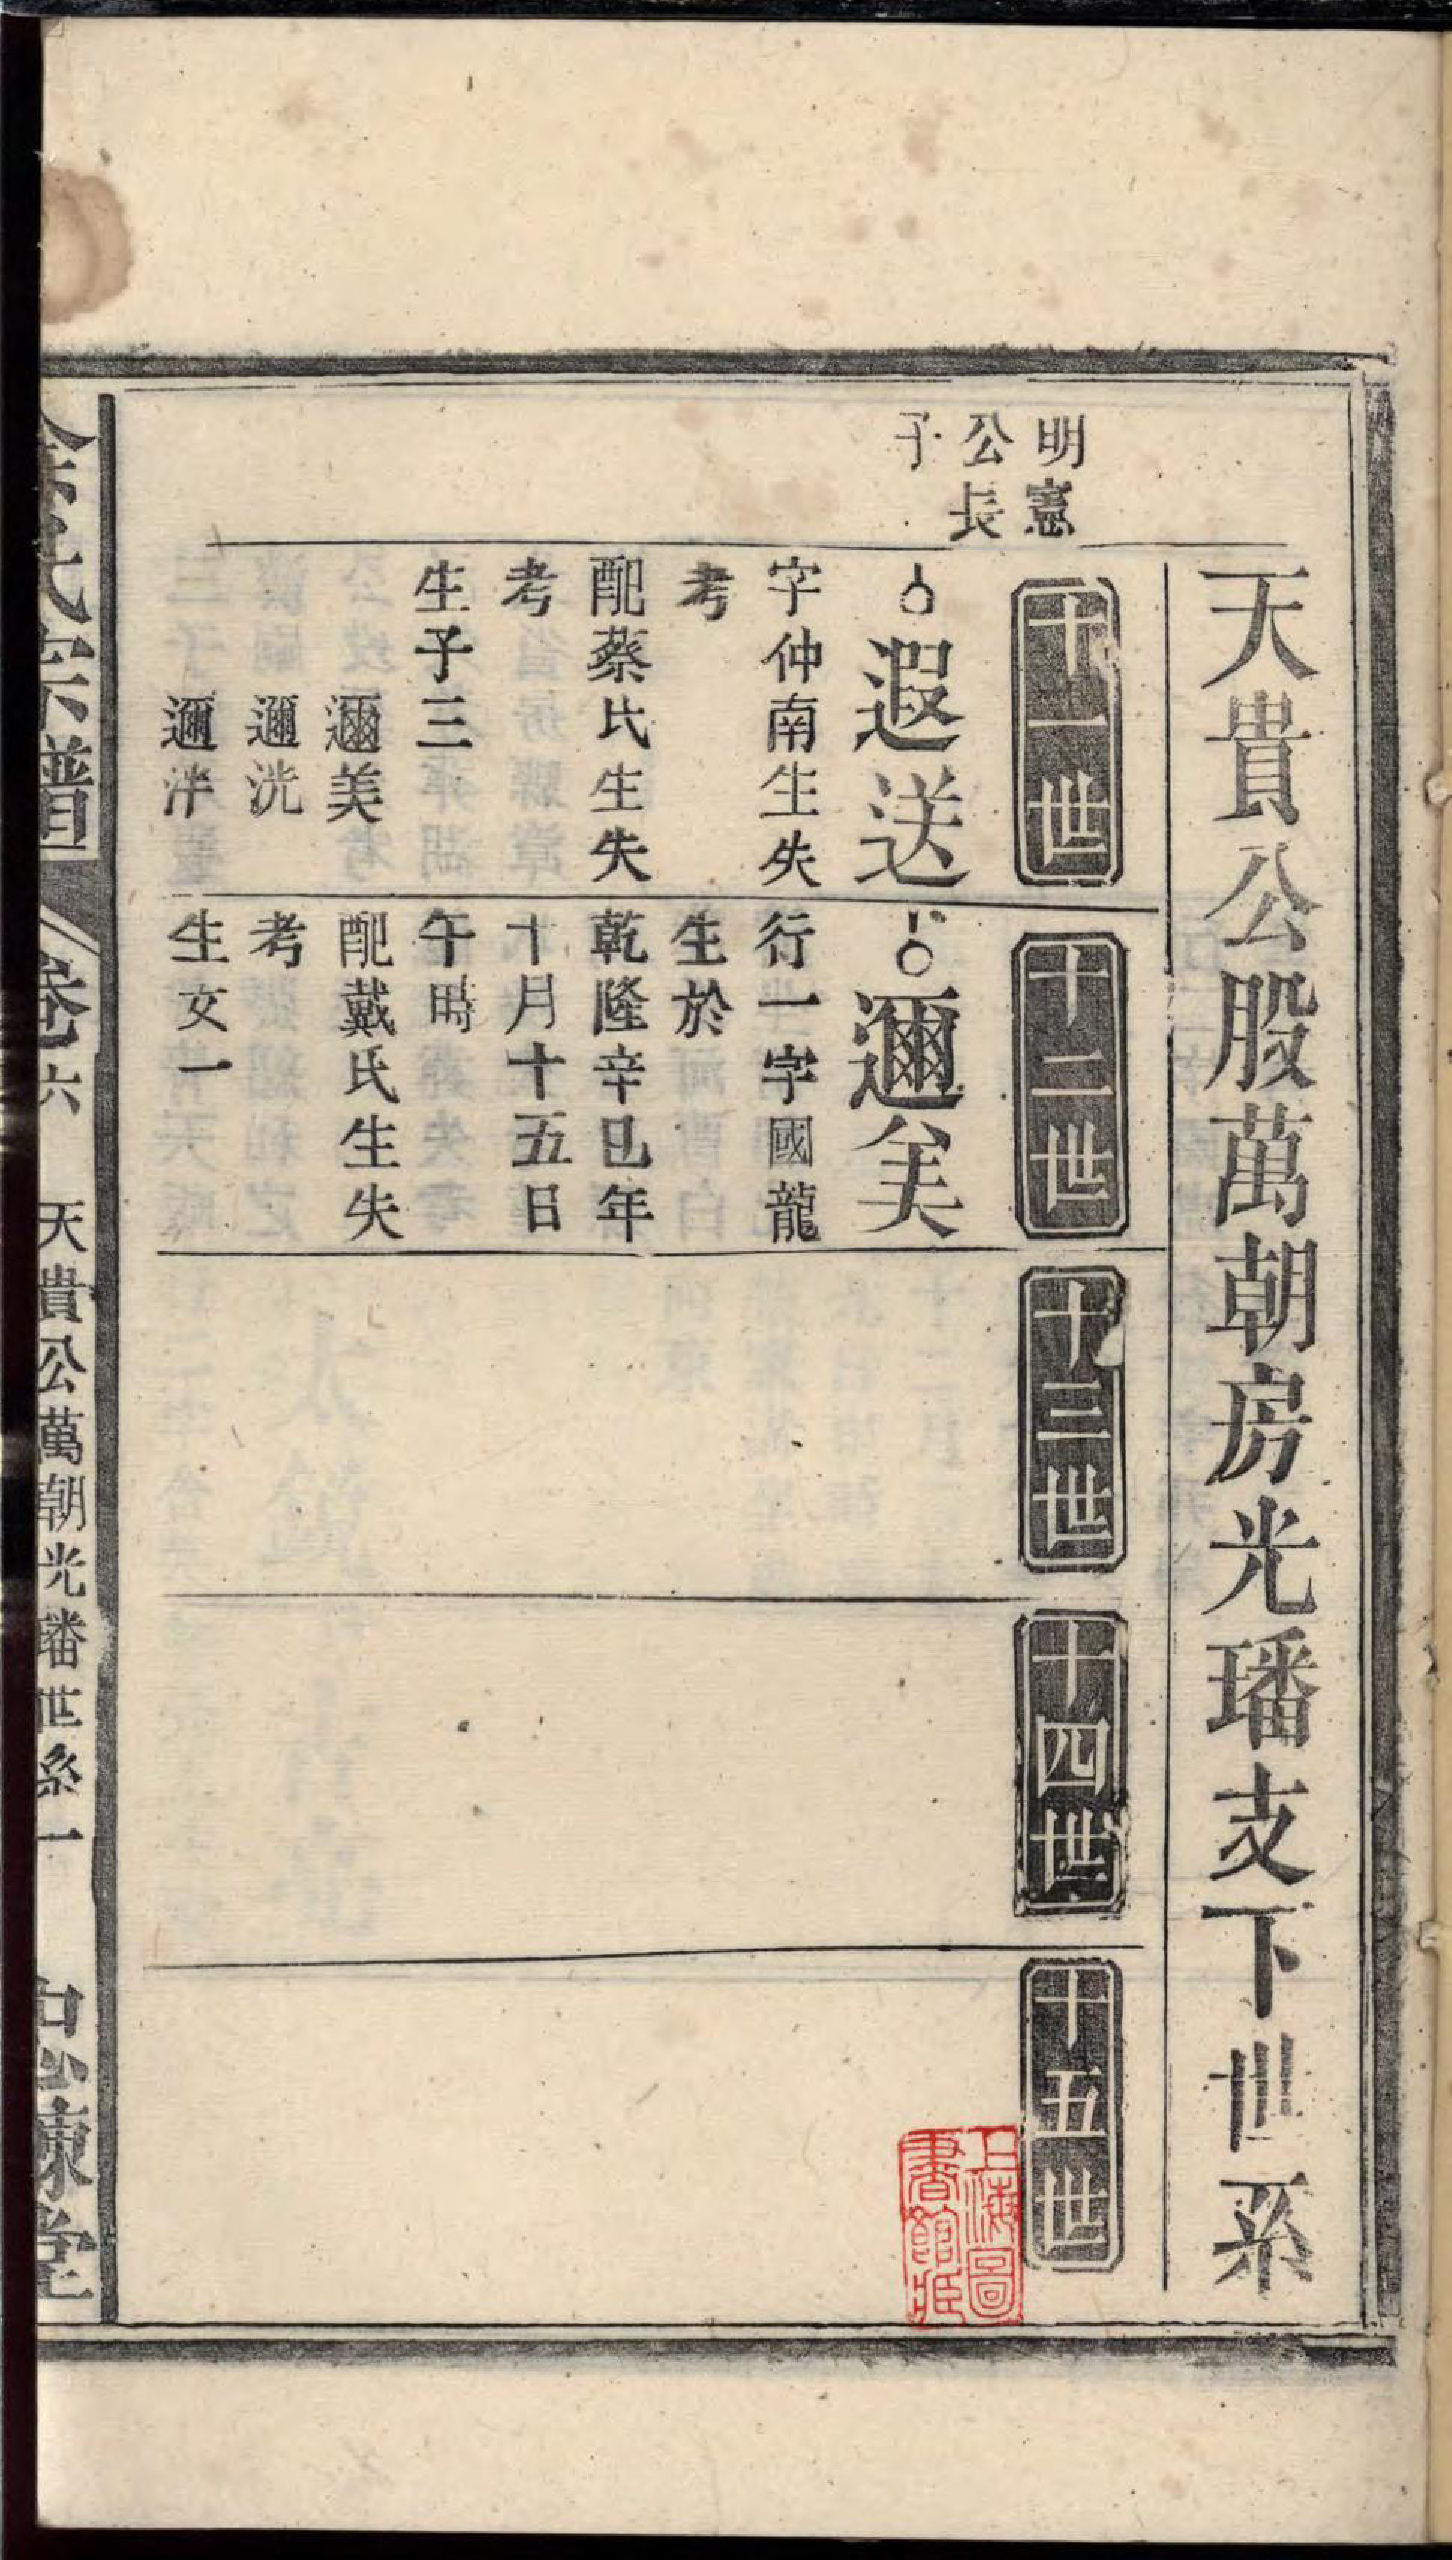 天貴公股萬朝房光璠支下世系
明憲
公長
子
十一世
遐送
字仲南生失
考
配蔡氏生失
考
生子三
邇美
邇洸
邇泮
十二世
邇美
行一字國龍
生於
乾隆辛巳年
十月十五日
午時
配戴氏生失
考
生女一
十三世
十四世
十五世
上海圖
書館藏
氏宗譜
卷六
天貴公萬朝光璠世系一
堂